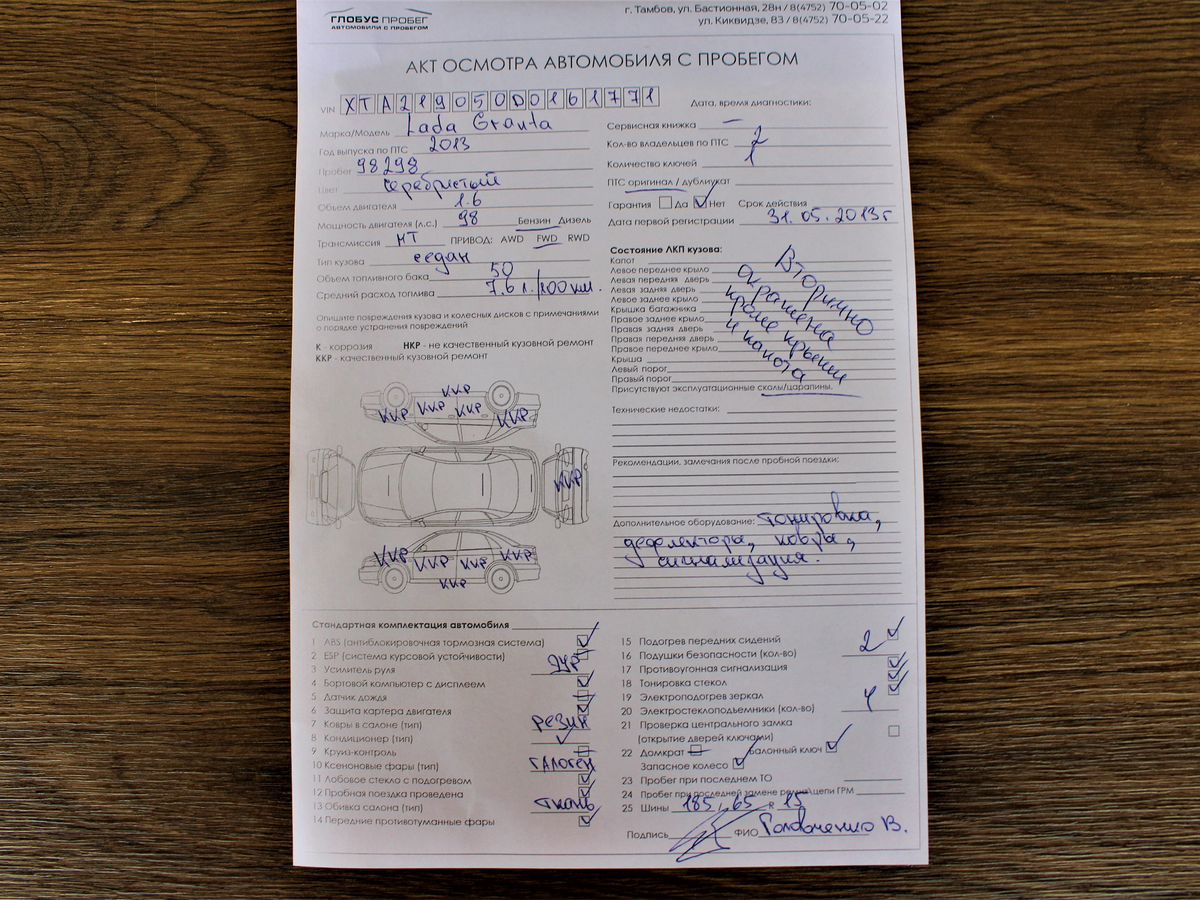 ГЛОБУС ПРОБЕГ
АВТОМОБИЛИ С ПРОБЕГОМ
г. Тамбов, ул. Бастионная, 28н / 8(4752) 70-05-02
ул. Киквидзе, 83 / 8(4752) 70-05-22
АКТ ОСМОТРА АВТОМОБИЛЯ С ПРОБЕГОМ
VIN XTA219050D0161771
Марка/Модель Lada Granta
Год выпуска по ПТС 2013
Пробег 98298
Цвет серебристый
Объем двигателя 1.6
Мощность двигателя (л.с.) 98 Бензин Дизель
Трансмиссия МТ ПРИВОД: AWD FWD RWD
Тип кузова седан
Объем топливного бака 50
Средний расход топлива 7.6 л./100 км.
Опишите повреждения кузова и колесных дисков с примечаниями
о порядке устранения повреждений
К - коррозия НКР - не качественный кузовной ремонт
ККР - качественный кузовной ремонт
ККР
ККР ККР ККР ККР
ККР
ККР ККР ККР ККР
ККР
Дата, время диагностики:
Сервисная книжка —
Кол-во владельцев по ПТС 2
Количество ключей 1
ПТС оригинал / дубликат
Гарантия Да Нет Срок действия
Дата первой регистрации 31.05.2013г
Состояние ЛКП кузова:
Капот
Левое переднее крыло
Левая передняя дверь
Левая задняя дверь
Левое заднее крыло
Крышка багажника
Правое заднее крыло
Правая задняя дверь
Правая передняя дверь
Правое переднее крыло
Крыша
Левый порог
Правый порог
Вторично
окрашена
кроме крыши
и капота
Присутствуют эксплуатационные сколы/царапины.
Технические недостатки:
Рекомендации, замечания после пробной поездки:
Дополнительное оборудование: тонировка,
дефлектора, ковры,
сигнализация.
Стандартная комплектация автомобиля
1 ABS (антиблокировочная тормозная система)
2 ESP (система курсовой устойчивости)
3 Усилитель руля ЭУР
4 Бортовой компьютер с дисплеем
5 Датчик дождя
6 Защита картера двигателя
7 Ковры в салоне (тип) РЕЗИН
8 Кондиционер (тип)
9 Круиз-контроль
10 Ксеноновые фары (тип) ГАЛОГЕН
11 Лобовое стекло с подогревом
12 Пробная поездка проведена
13 Обивка салона (тип) ткань
14 Передние противотуманные фары
15 Подогрев передних сидений
16 Подушки безопасности (кол-во) 2
17 Противоугонная сигнализация
18 Тонировка стекол
19 Электроподогрев зеркал
20 Электростеклоподъемники (кол-во) 4
21 Проверка центрального замка
(открытие дверей ключами)
22 Домкрат Балонный ключ
Запасное колесо
23 Пробег при последнем ТО
24 Пробег при последней замене ремня/цепи ГРМ
25 Шины 185 / 65 R 15
Подпись ФИО Головченко В.